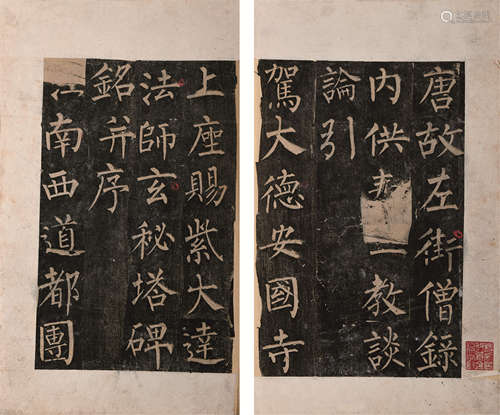 唐故左街僧錄
內供一教談
論引
駕大德安國寺
上座賜紫大達
法師玄秘塔碑
銘并序
江南西道都團